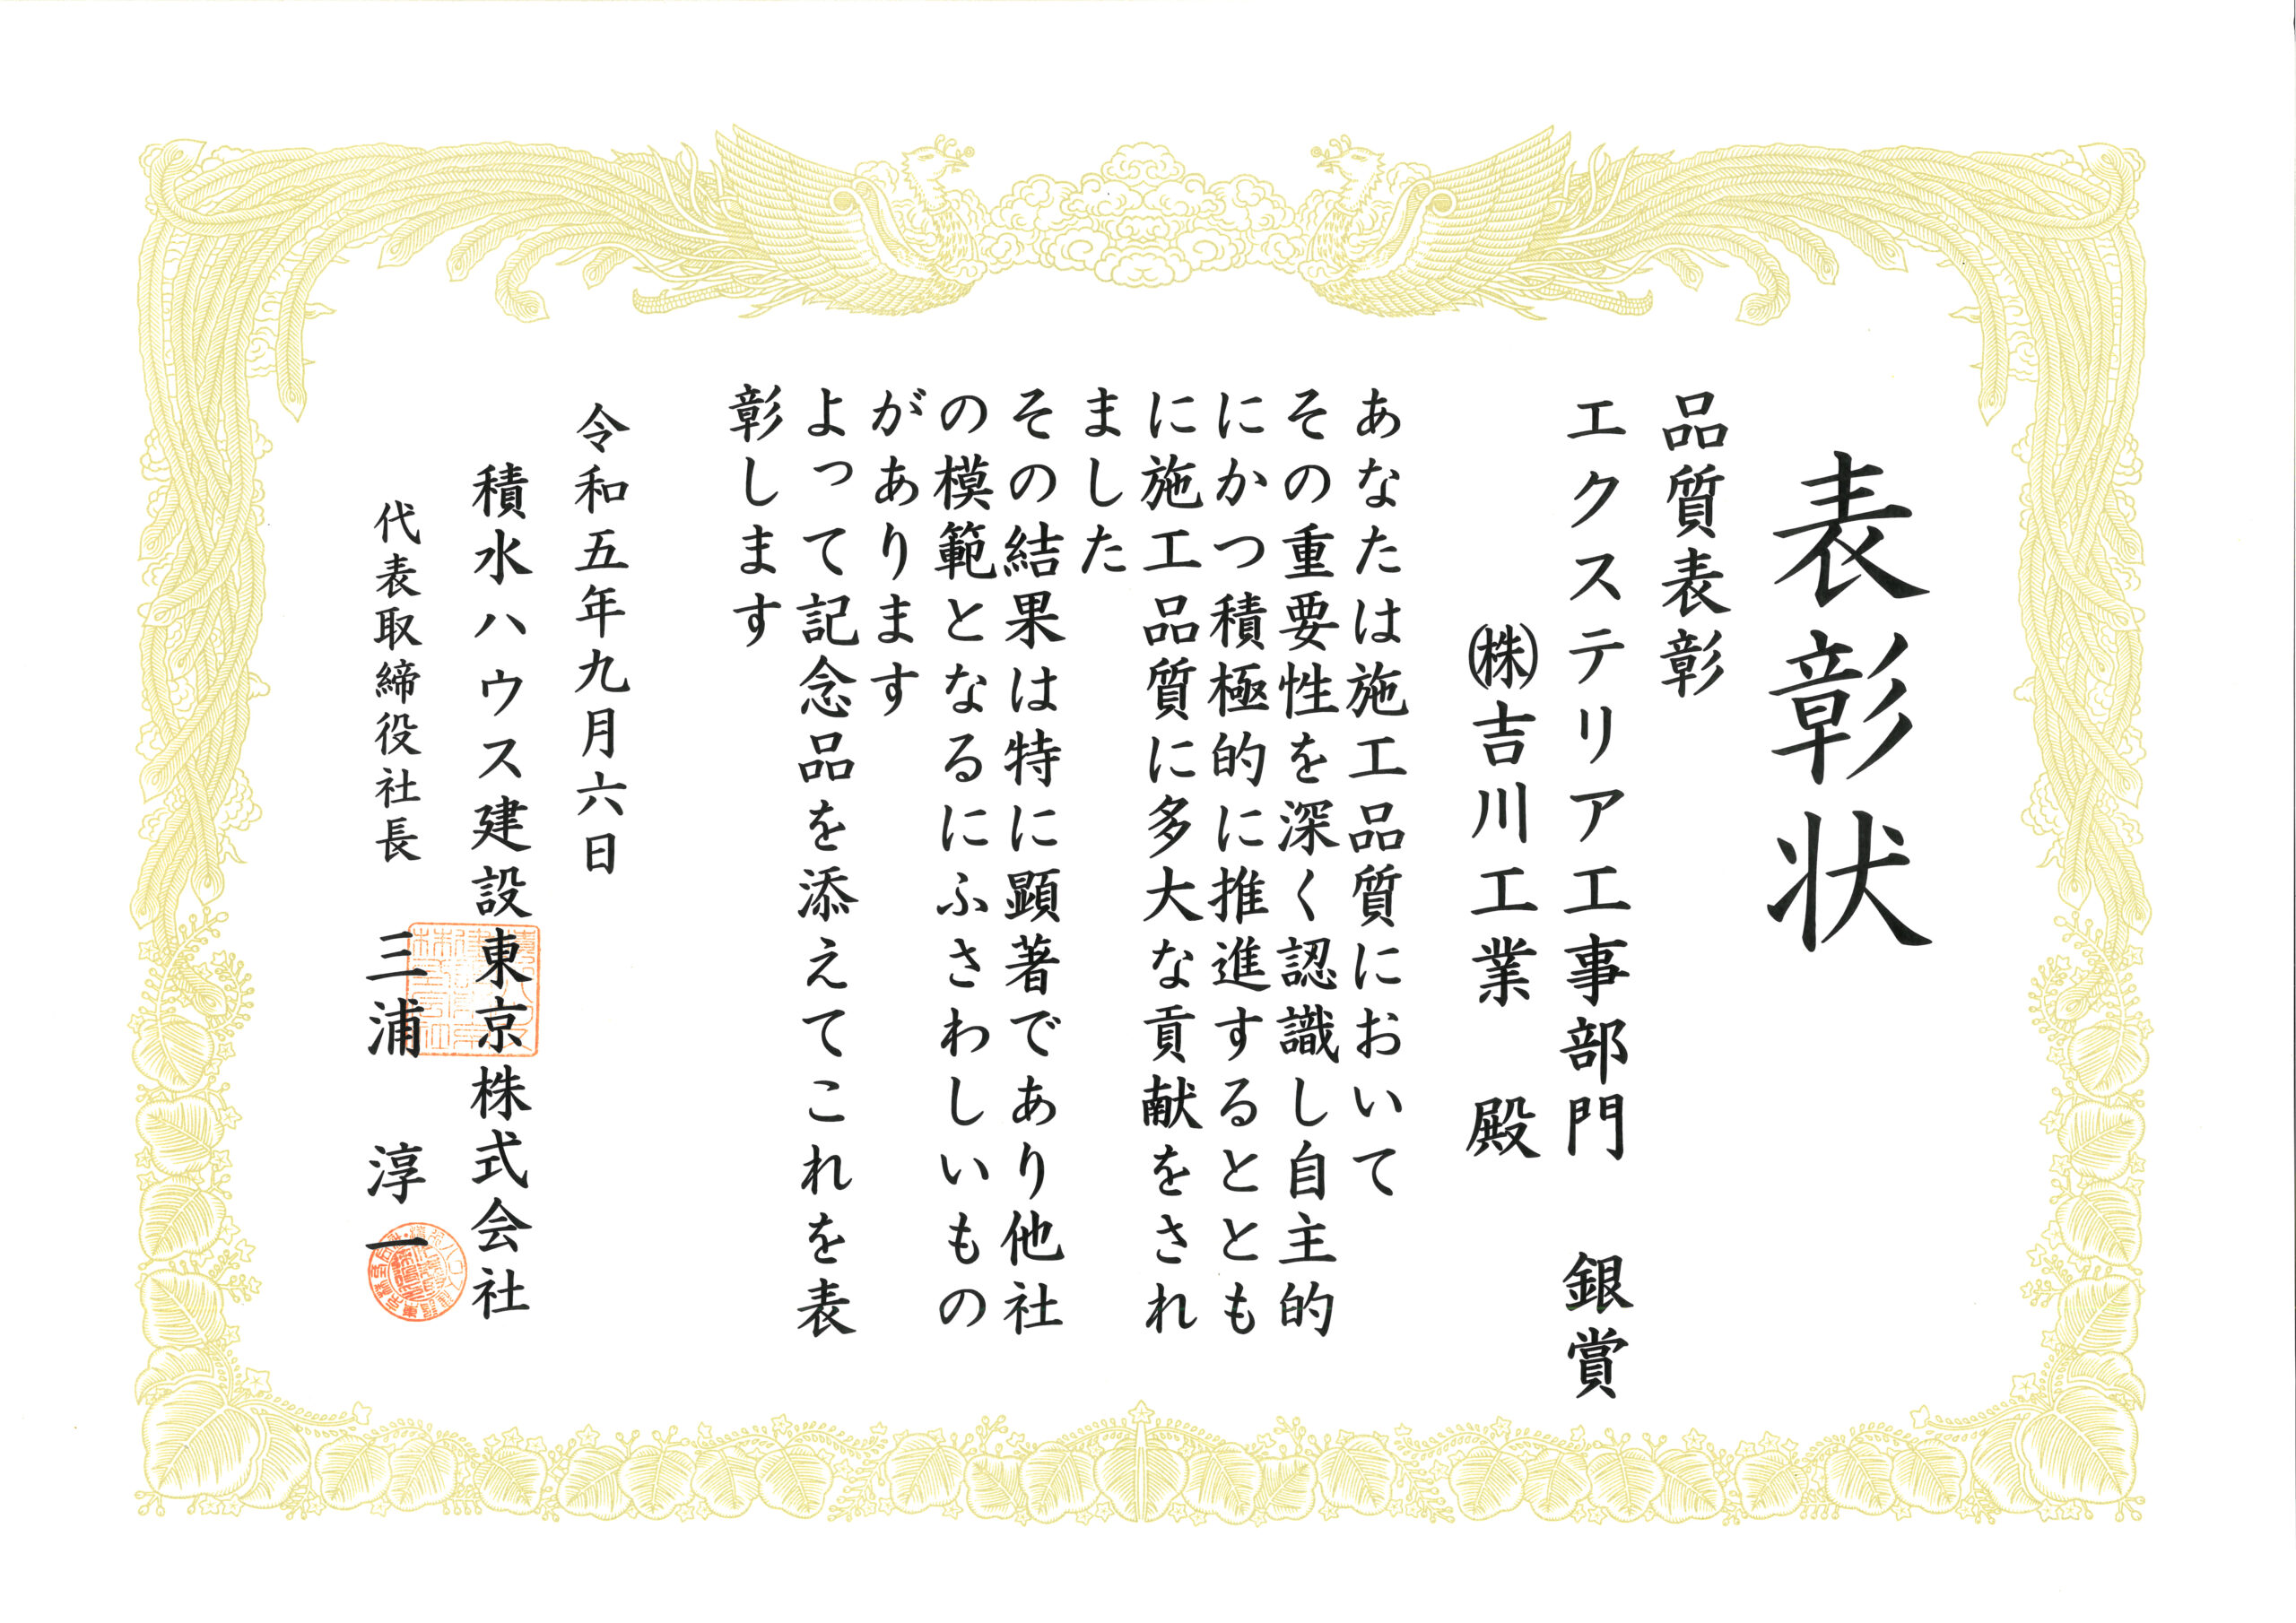 表彰状
品質表彰
エクステリア工事部門 銀賞
㈱吉川工業 殿
あなたは施工品質において
その重要性を深く認識し自主的
にかつ積極的に推進するととも
に施工品質に多大な貢献をされ
ました
その結果は特に顕著であり他社
の模範となるにふさわしいもの
があります
よって記念品を添えてこれを表
彰します
令和五年九月六日
積水ハウス建設東京株式会社
代表取締役社長 三浦 淳一